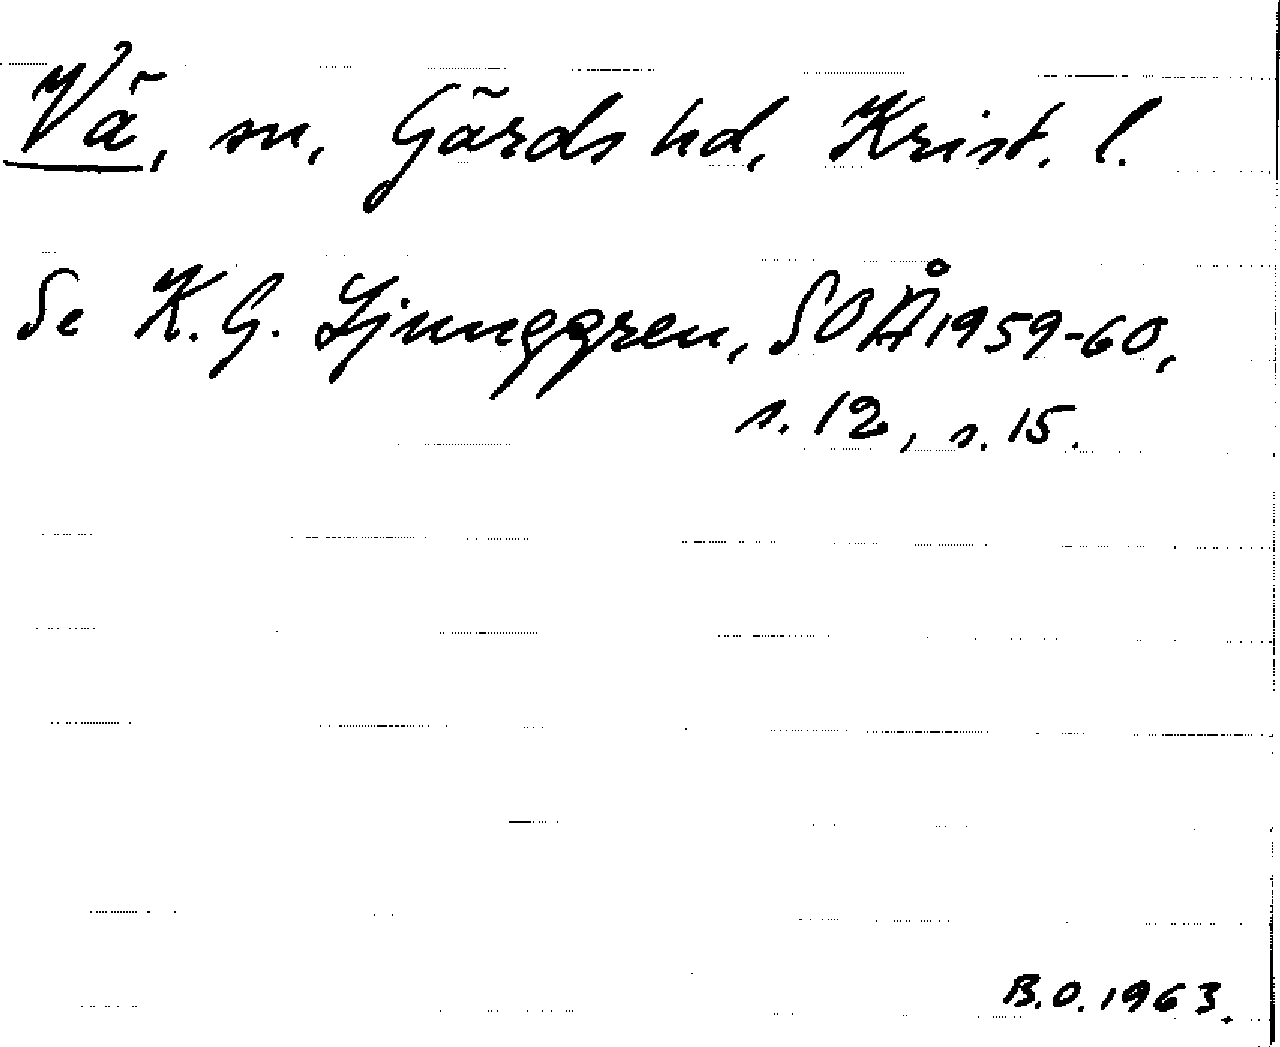 Vä, sn, Gärds hd, Krist. l.
Se K.G. Ljunggren, SOÅ 1959-60,
s. 12, s. 15.
B.O. 1963.